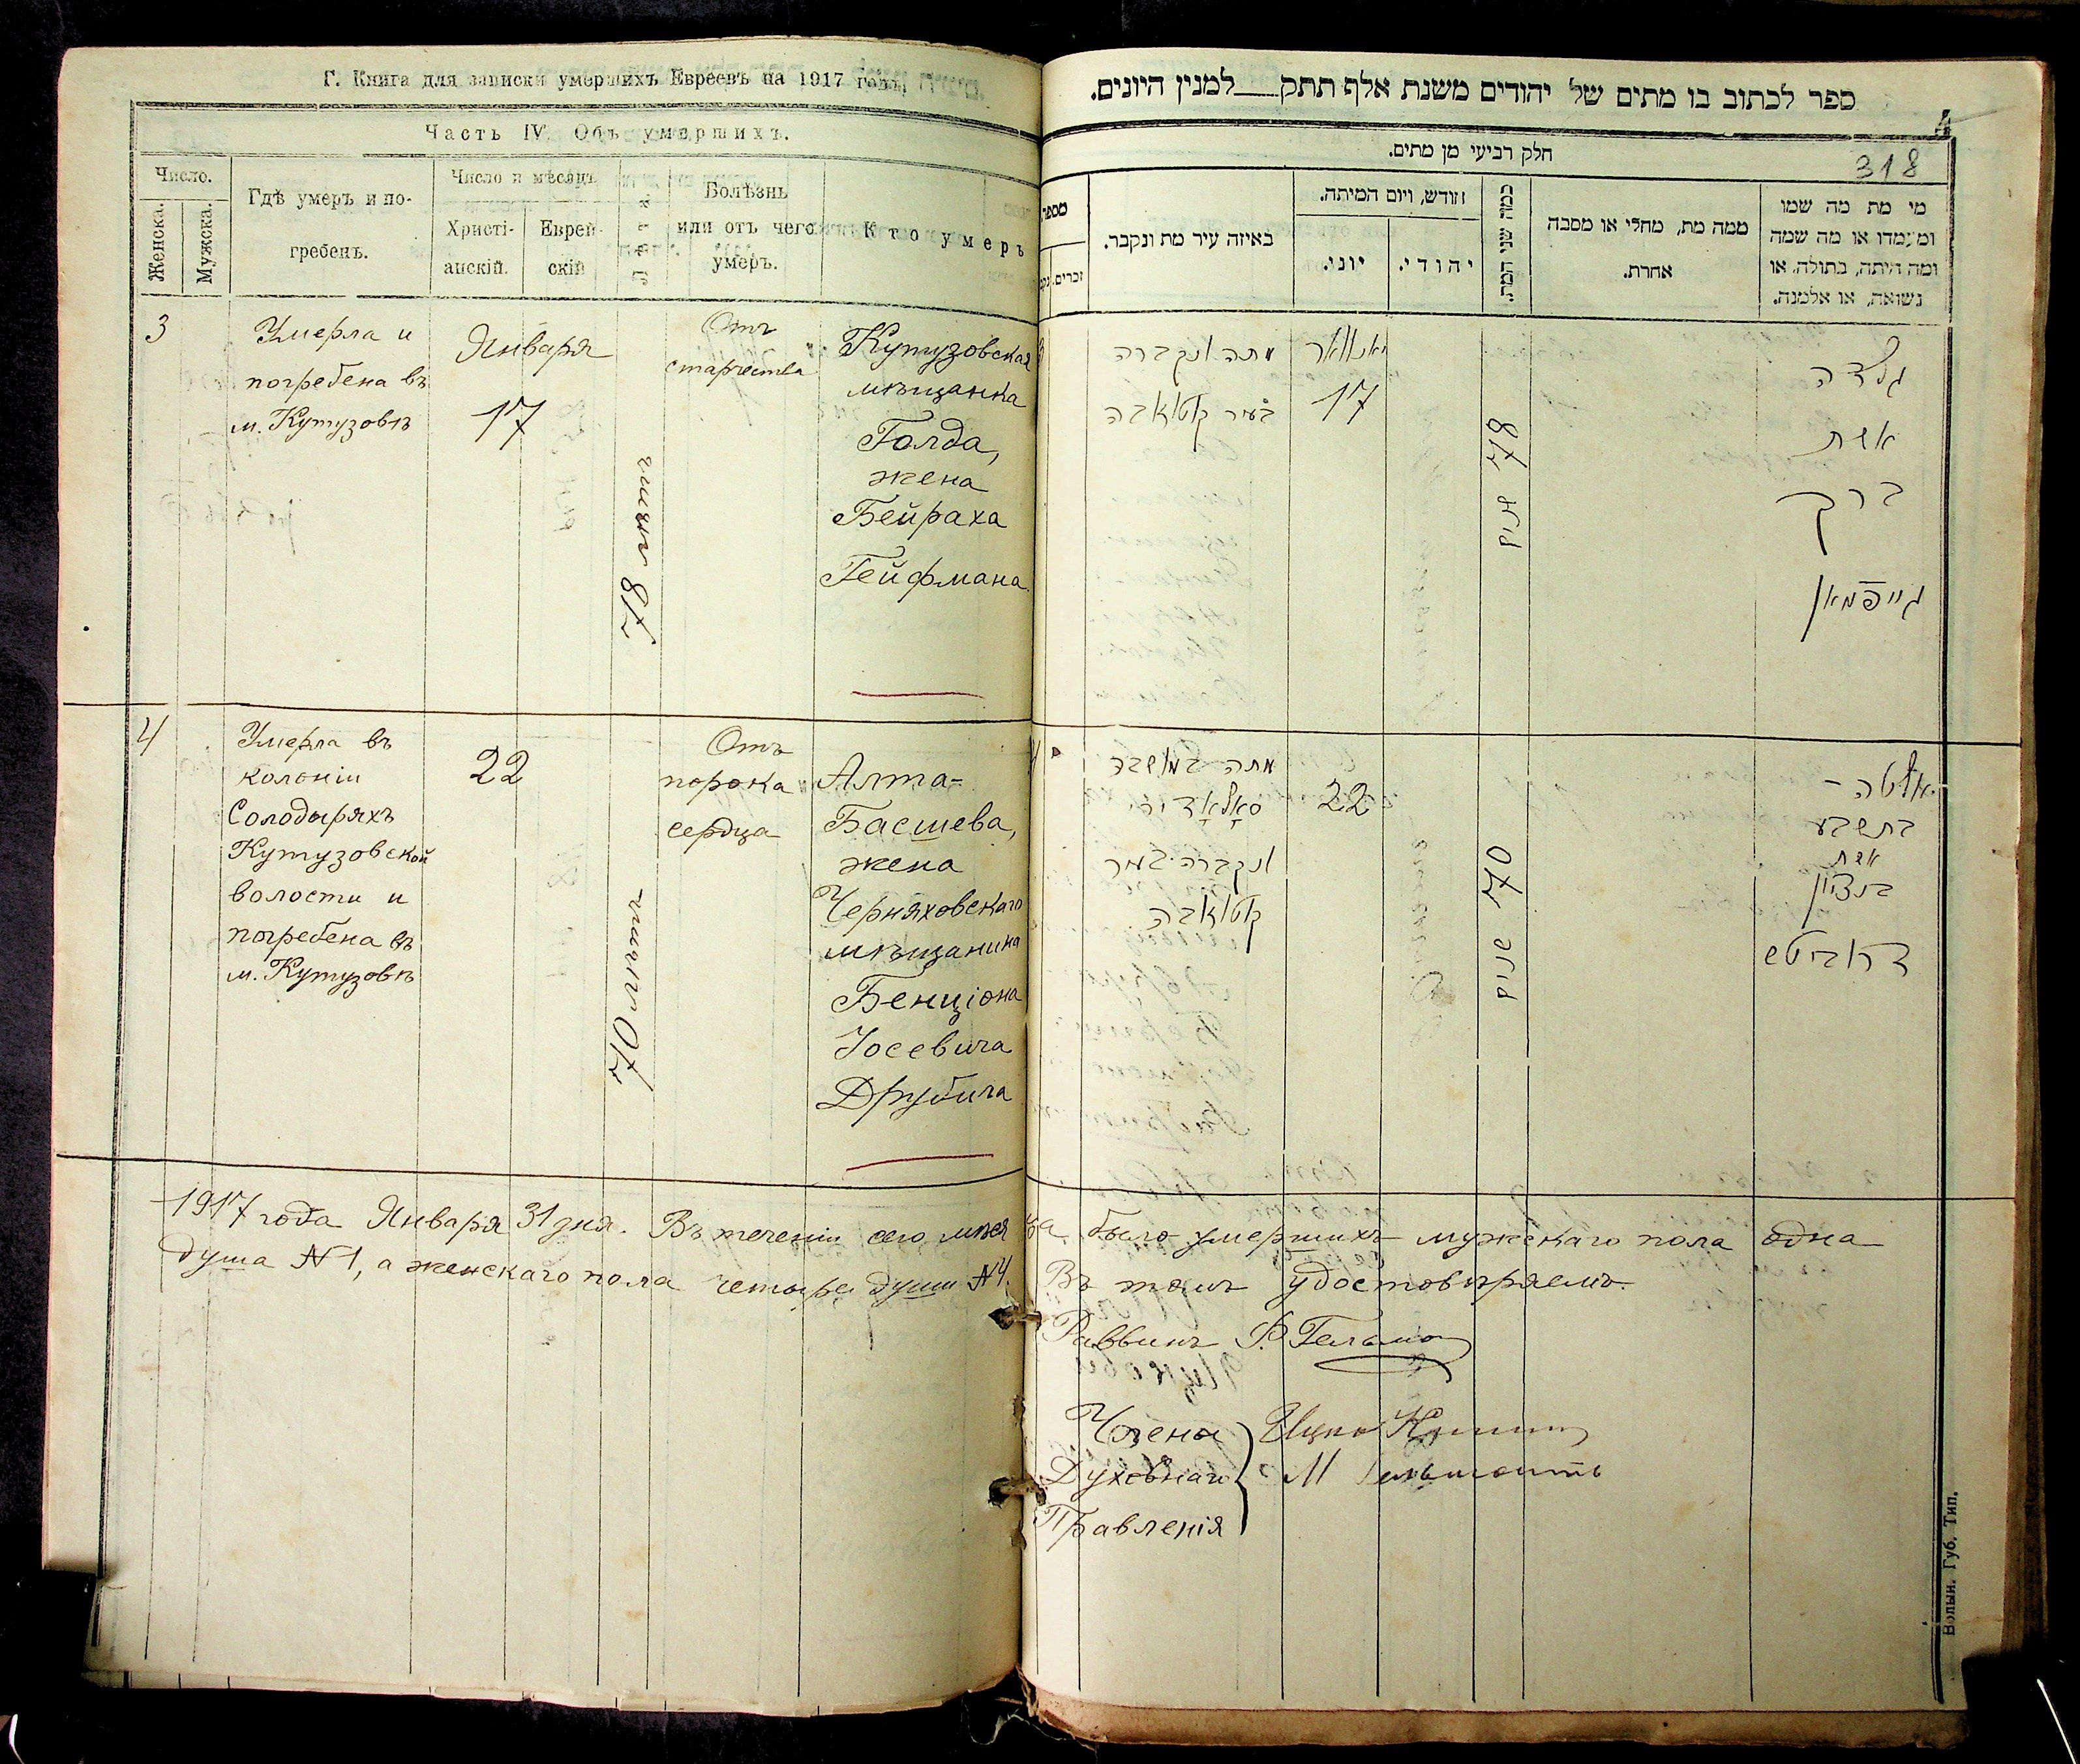 Г. Книга для записки умершихъ Евреевъ на 1917 годъ
Часть IV. Объ умершихъ.
Число.
Женска.
Мужска.
Гдѣ умеръ и по-
гребенъ.
Число и мѣсяцъ
Христі-
анскій.
Еврей-
скій
Лѣта.
Болѣзнь
или отъ чего
умеръ.
Кто умеръ
3
Умерла и
погребена въ
м. Кутузовѣ
Января
17
78 лѣтъ
Отъ
старчества
Кутузовская
мѣщанка
Голда,
жена
Бейраха
Гейфмана
4
Умерла въ
колоніи
Солодыряхъ
Кутузовской
волости и
погребена въ
м. Кутузовѣ
22
70 лѣтъ
Отъ
порока
сердца
Алта-
Басшева,
жена
Черняховскаго
мѣщанина
Бенціона
Іосевича
Друбича
ספר לכתוב בו מתים של יהודים משנת אלף תתק למנין היונים.
4
חלק רביעי מן מתים.
318
מספר
זכרים.
באיזה עיר מת ונקבר.
חודש, ויום המיתה.
יוני.
יהודי.
כמה שני המת.
ממה מת, מחלי או מסבה
אחרת.
מי מת מה שמו
ומעמדו או מה שמה
ומה היתה, בתולה, או
נשואה, או אלמנה.
מתה ונקברה
בעיר
יאנואר
17
78 שנים
גולדה
אשת
ברך
גייפמאן
4
מתה במושבה
סאלאדירי
ונקברה בעיר
22
70 שנים
אלטה-
בתשבע
אשת
בנציון
דראביטש
1917 года Января 31 дня. Въ теченіи сего мѣсяца было умершихъ мужескаго пола одна
душа №1, а женскаго пола четыре души №4. Въ томъ удостовѣряемъ.
Раввинъ
Члены
Духовнаго
Правленія
Ицко
М
Волын. Губ. Тип.